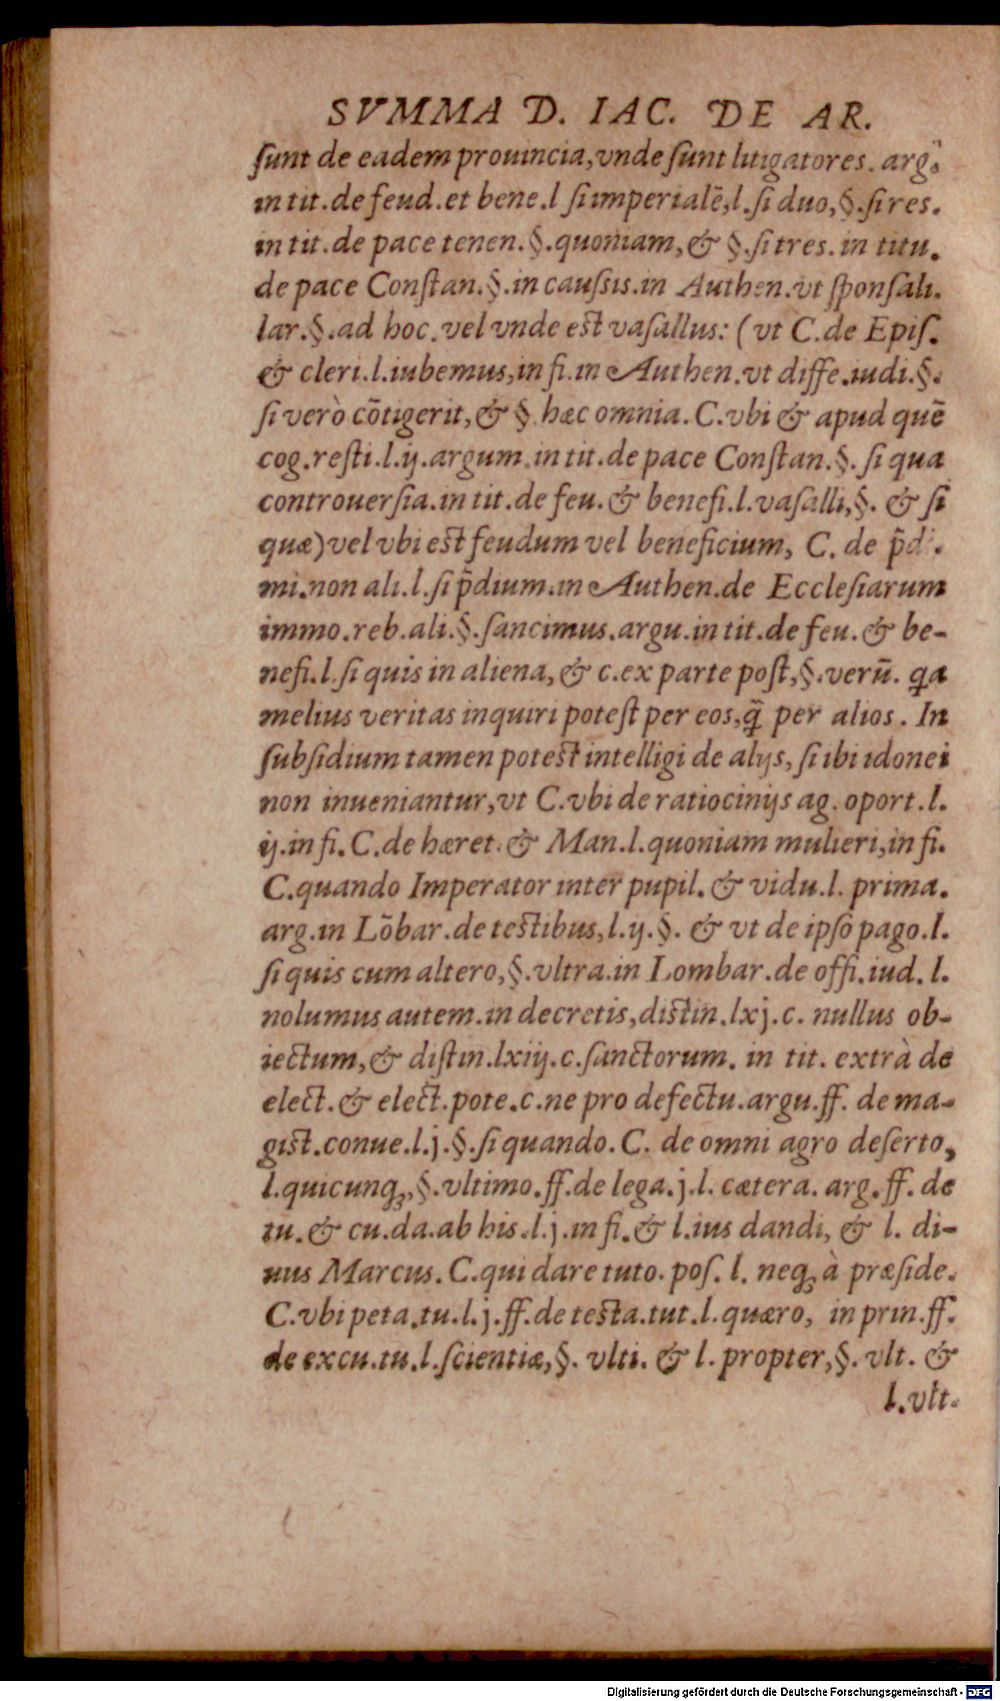 SVMMA D. IAC. DE AR.
ſunt de eadem prouincia, vnde ſunt litigatores. arg.
in tit. de feud. et bene. l ſi imperialē, l. ſi duo, §. ſi res.
in tit. de pace tenen. §. quoniam, & §. ſi tres. in titu.
de pace Conſtan. §. in cauſsis. in Authen. vt ſponſali.
lar. §. ad hoc. vel vnde eſt vaſallus: (vt C. de Epiſ.
& cleri. l. iubemus, in fi. in Authen. vt diffe. iudi. §.
ſi verò cōtigerit, & §. hæc omnia. C. vbi & apud quē
cog. reſti. l. ij. argum. in tit. de pace Conſtan. §. ſi qua
controuerſia. in tit. de feu. & benefi. l. vaſalli, §. & ſi
quæ) vel vbi eſt feudum vel beneficium, C. de p̄di.
mi. non ali. l. ſi p̄dium. in Authen. de Eccleſiarum
immo. reb. ali. §. ſancimus. argu. in tit. de feu. & be-
nefi. l. ſi quis in aliena, & c. ex parte poſt, §. verū. qa
melius veritas inquiri poteſt per eos, q̄ per alios. In
ſubſidium tamen poteſt intelligi de alijs, ſi ibi idonei
non inueniantur, vt C. vbi de ratiocinijs ag. oport. l.
ij. in fi. C. de hæret. & Man. l. quoniam mulieri, in fi.
C. quando Imperator inter pupil. & vidu. l. prima.
arg. in Lōbar. de teſtibus, l. ij. §. & vt de ipſo pago. l.
ſi quis cum altero, §. vltra. in Lombar. de offi. iud. l.
nolumus autem. in decretis, diſtin. lxj. c. nullus ob-
iectum, & diſtin. lxiij. c. ſanctorum. in tit. extrà de
elect. & elect. pote. c. ne pro defectu. argu. ff. de ma-
giſt. conue. l. j. §. ſi quando. C. de omni agro deſerto,
l. quicunqꝫ, §. vltimo. ff. de lega. j. l. cætera. arg. ff. de
tu. & cu. da. ab his. l. j. in fi. & l. ius dandi, & l. di-
uus Marcus. C. qui dare tuto. poſ. l. neqꝫ à præſide.
C. vbi peta. tu. l. j. ff. de teſta. tut. l. quæro, in prin. ff.
de excu. tu. l. ſcientiæ, §. vlti. & l. propter, §. vlt. &
l. vlt.
Digitalisierung gefördert durch die Deutsche Forschungsgemeinschaft - DFG